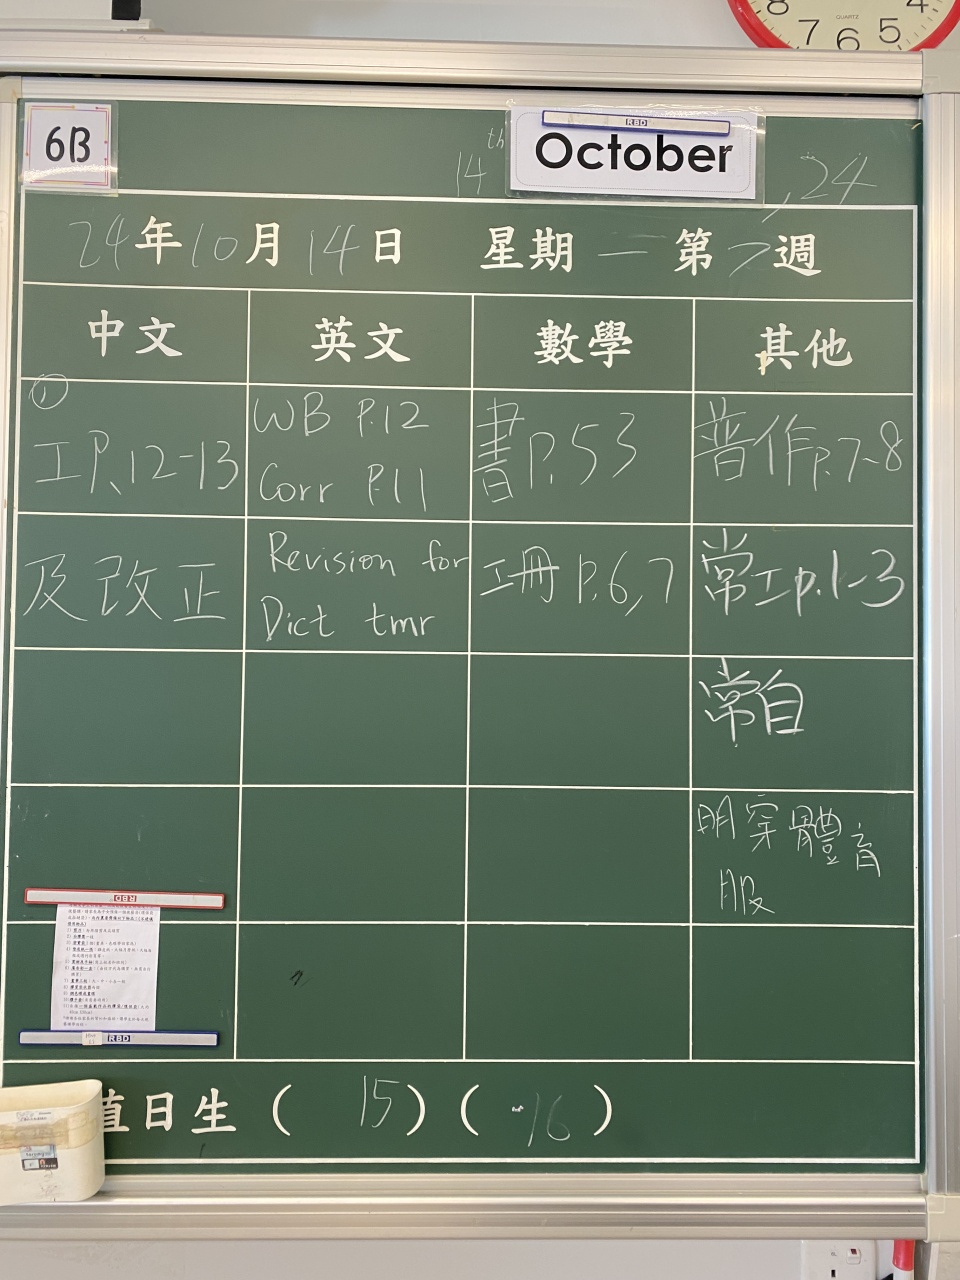 8 7 6 5 4
QUARTZ
6B
RBD
14th October , 24
24年10月14日 星期一 第7週
中文 英文 數學 其他
①
工P.12-13
WB P.12
Corr P.11
書P.53
普作p.7-8
及改正
Revision for
Dict tmr
工冊 P.6,7
常工p.1-3
常自
明穿體育
服
RBD
RBD
值日生 ( 15 ) ( 16 )